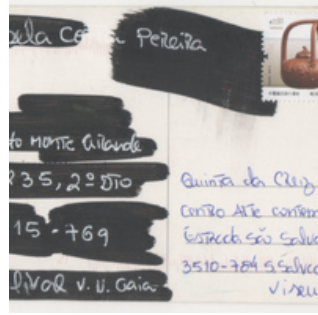 Pereira
to Monte Grande
235, 2º DTO
15-769
olival V.N. Gaia
Quinta da Cruz
Centro Arte contem
Estrada São Salva
3510-784 S. Salva
Viseu